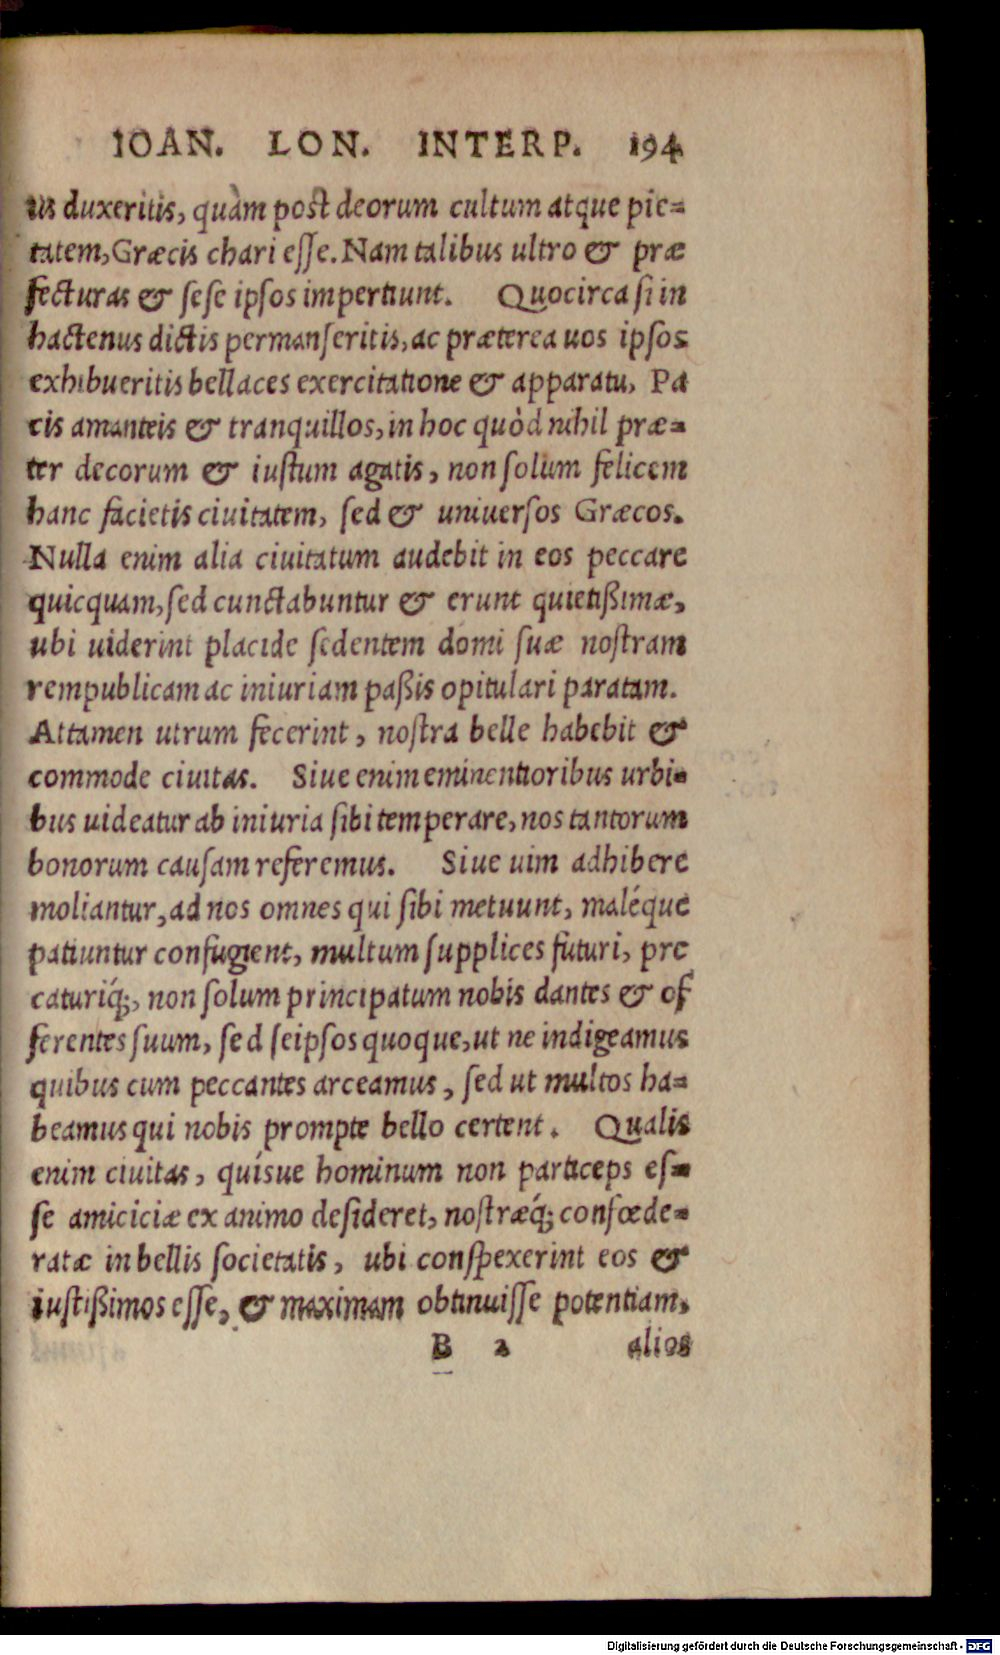 IOAN. LON. INTERP. 194
us duxeritis, quàm post deorum cultum atque pie-
tatem, Græcis chari esse. Nam talibus ultro & præ
fecturas & sese ipsos impertiunt. Quocirca si in
hactenus dictis permanseritis, ac præterea uos ipsos
exhibueritis bellaces exercitatione & apparatu, Pa
cis amanteis & tranquillos, in hoc quòd nihil præ-
ter decorum & iustum agatis, non solum felicem
hanc facietis ciuitatem, sed & uniuersos Græcos.
Nulla enim alia ciuitatum audebit in eos peccare
quicquam, sed cunctabuntur & erunt quietißimæ,
ubi uiderint placide sedentem domi suæ nostram
rempublicam ac iniuriam paßis opitulari paratam.
Attamen utrum fecerint, nostra belle habebit &
commode ciuitas. Siue enim eminentioribus urbi-
bus uideatur ab iniuria sibi temperare, nos tantorum
bonorum causam referemus. Siue uim adhibere
moliantur, ad nos omnes qui sibi metuunt, maléque
patiuntur confugient, multum supplices futuri, pre
caturiq́;, non solum principatum nobis dantes & of
ferentes suum, sed seipsos quoque, ut ne indigeamus
quibus cum peccantes arceamus, sed ut multos ha-
beamus qui nobis prompte bello certent. Qualis
enim ciuitas, quísue hominum non particeps es-
se amiciciæ ex animo desideret, nostræq́; confœde-
ratæ in bellis societatis, ubi conspexerint eos &
iustißimos esse, & maximam obtinuisse potentiam,
B 2 alios
Digitalisierung gefördert durch die Deutsche Forschungsgemeinschaft - DFG